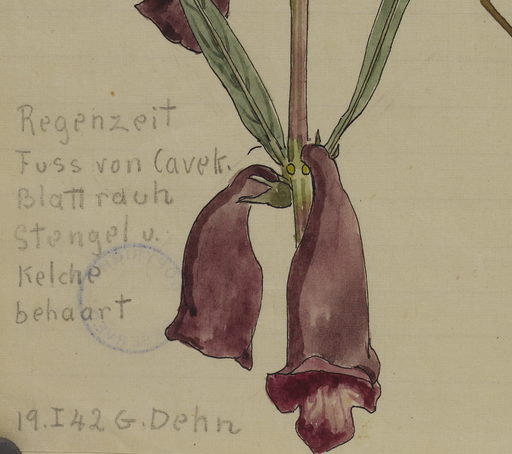 Regenzeit
Fuss von Cavek.
Blatt rauh
Stengel u.
Kelche
behaart
19.I 42 G. Dehn